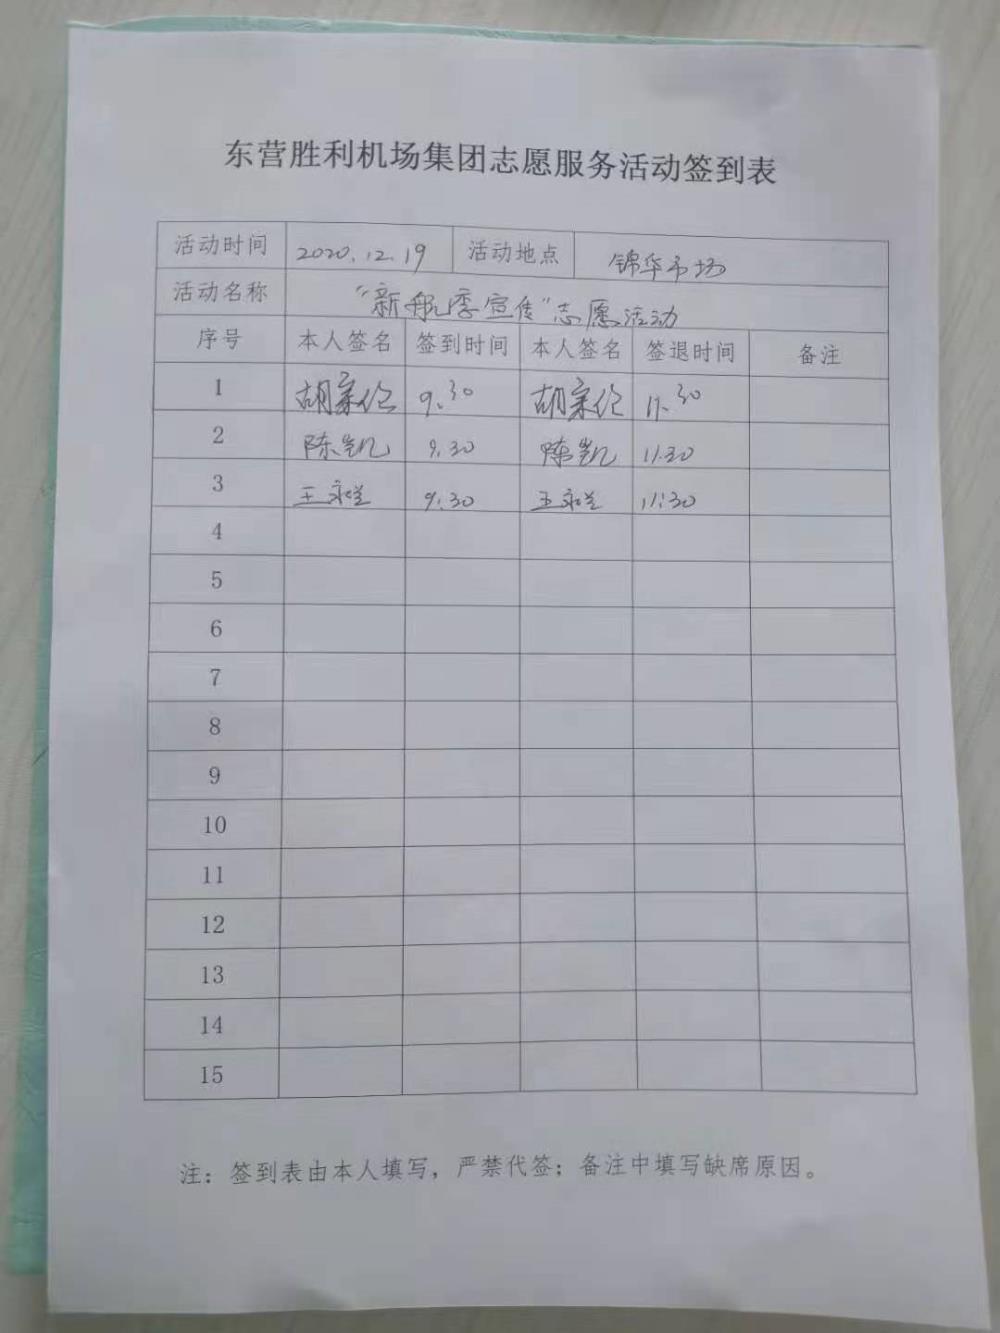 东营胜利机场集团志愿服务活动签到表
活动时间 2020.12.19 活动地点 锦华市场
活动名称 "新航季宣传"志愿活动
序号 本人签名 签到时间 本人签名 签退时间 备注
1 胡家伦 9.30 胡家伦 11.30
2 陈凯 9.30 陈凯 11.30
3 王 9:30 王 11:30
4
5
6
7
8
9
10
11
12
13
14
15
注：签到表由本人填写，严禁代签；备注中填写缺席原因。